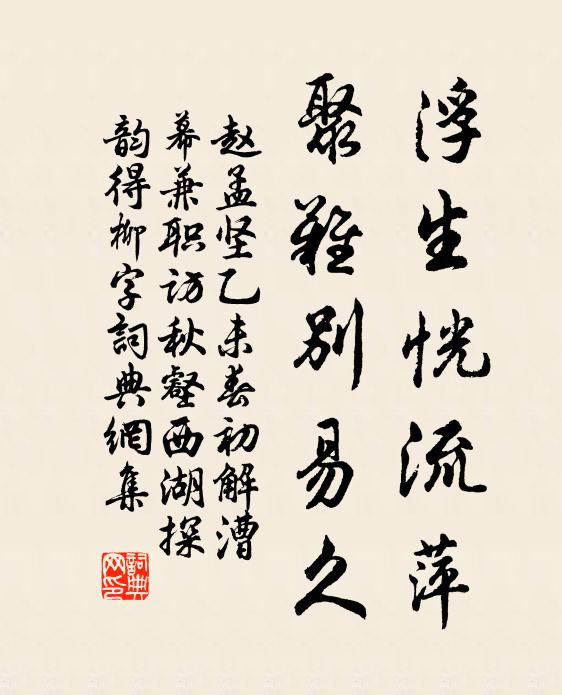 浮生恍流萍
聚難別易久
赵孟坚乙未春初解漕
幕兼职访秋壑西湖探
韵得柳字詞典網集
詞典網印